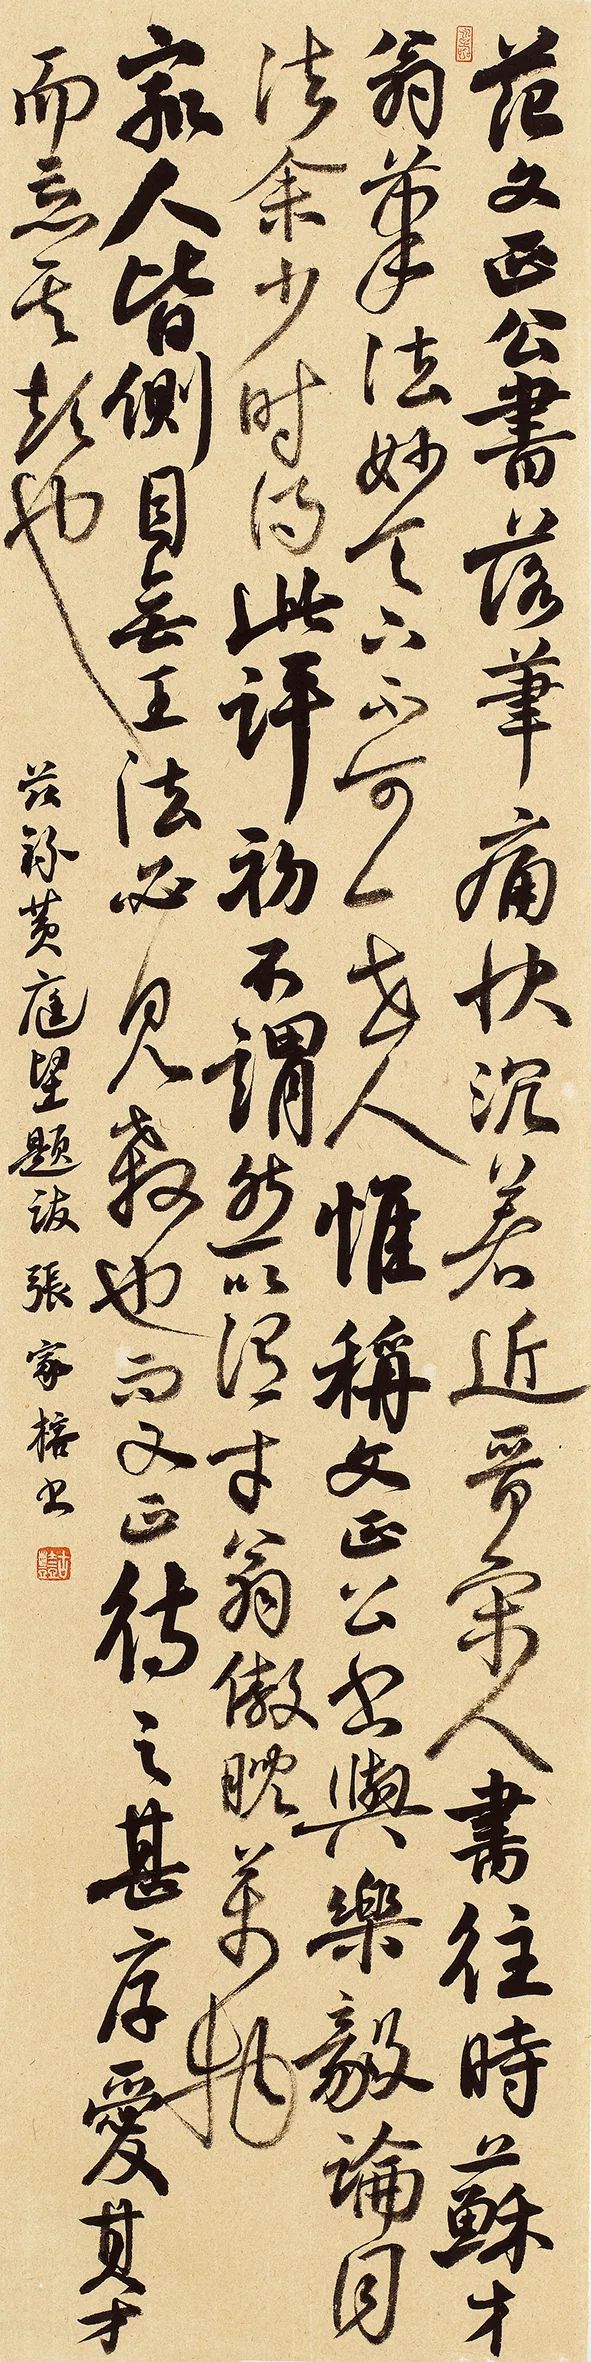 范文正公書落筆痛快沉着近晉宋人書往時蘇才
翁筆法妙天下不可一世人惟稱文正公书與樂毅論同
法余少时得此評初不謂然以謂才翁傲睨萬物
衆人皆側目無王法必見殺也而文正待之甚厚愛其才
而忘其短也
兹錄黄庭堅題跋張家榕书